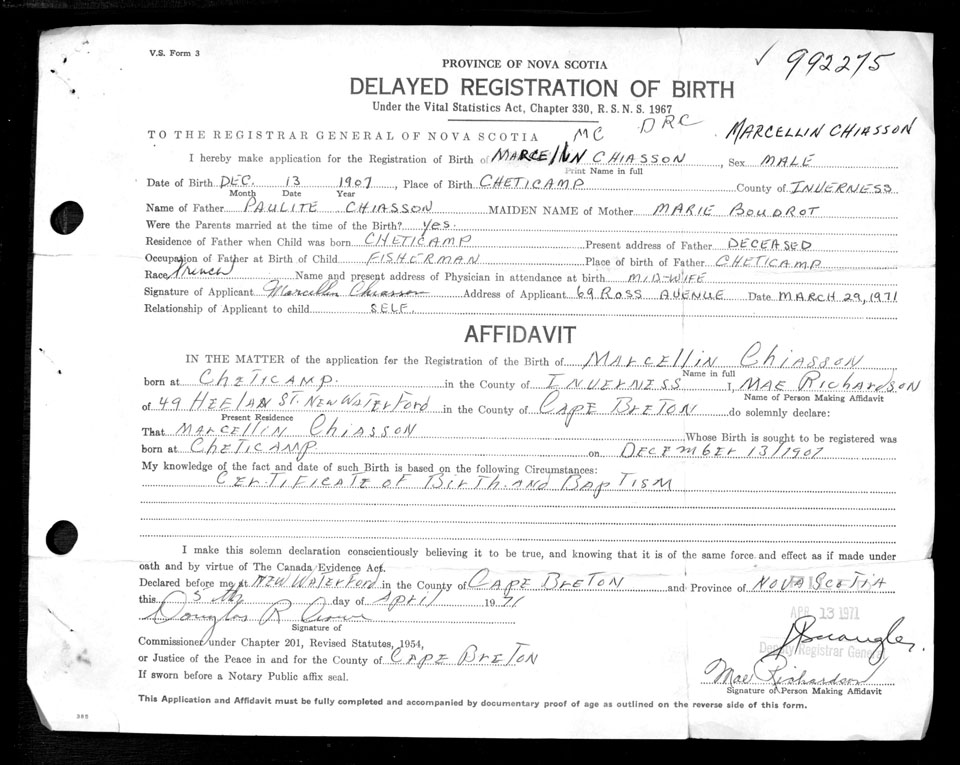 V.S. Form 3
✓ 992275
PROVINCE OF NOVA SCOTIA
DELAYED REGISTRATION OF BIRTH
Under the Vital Statistics Act, Chapter 330, R.S.N.S. 1967
TO THE REGISTRAR GENERAL OF NOVA SCOTIA MC DRC MARCELLIN CHIASSON
I hereby make application for the Registration of Birth of MARCELLIN CHIASSON, Sex MALE
Print Name in full
Date of Birth DEC. 13 1907, Place of Birth CHETICAMP County of INVERNESS
Month Date Year
Name of Father PAULITE CHIASSON MAIDEN NAME of Mother MARIE BOUDROT
Were the Parents married at the time of the Birth? yes.
Residence of Father when Child was born CHETICAMP Present address of Father DECEASED
Occupation of Father at Birth of Child FISHERMAN Place of birth of Father CHETICAMP
Race french Name and present address of Physician in attendance at birth MID-WIFE
Signature of Applicant Marcellin Chiasson Address of Applicant 69 ROSS AVENUE Date MARCH 29, 1971
Relationship of Applicant to child SELF.
AFFIDAVIT
IN THE MATTER of the application for the Registration of the Birth of MARCELLIN CHIASSON
Name in full
born at CHETICAMP. in the County of INVERNESS I, MAE RICHARDSON
Name of Person Making Affidavit
of 49 HEELAN ST. NEW WATERFORD in the County of CAPE BRETON do solemnly declare:
Present Residence
That MARCELLIN CHIASSON Whose Birth is sought to be registered was
born at CHETICAMP on DECEMBER 13/1907
My knowledge of the fact and date of such Birth is based on the following Circumstances:
CERTIFICATE OF BIRTH AND BAPTISM
I make this solemn declaration conscientiously believing it to be true, and knowing that it is of the same force and effect as if made under
oath and by virtue of The Canada Evidence Act.
Declared before me at NEW WATERFORD in the County of CAPE BRETON and Province of NOVA SCOTIA
this 5th day of April 1971
APR 13 1971
Douglas R
Signature of
Commissioner under Chapter 201, Revised Statutes, 1954,
Deputy Registrar General
or Justice of the Peace in and for the County of CAPE BRETON
Mae Richardson
If sworn before a Notary Public affix seal.
Signature of Person Making Affidavit
This Application and Affidavit must be fully completed and accompanied by documentary proof of age as outlined on the reverse side of this form.